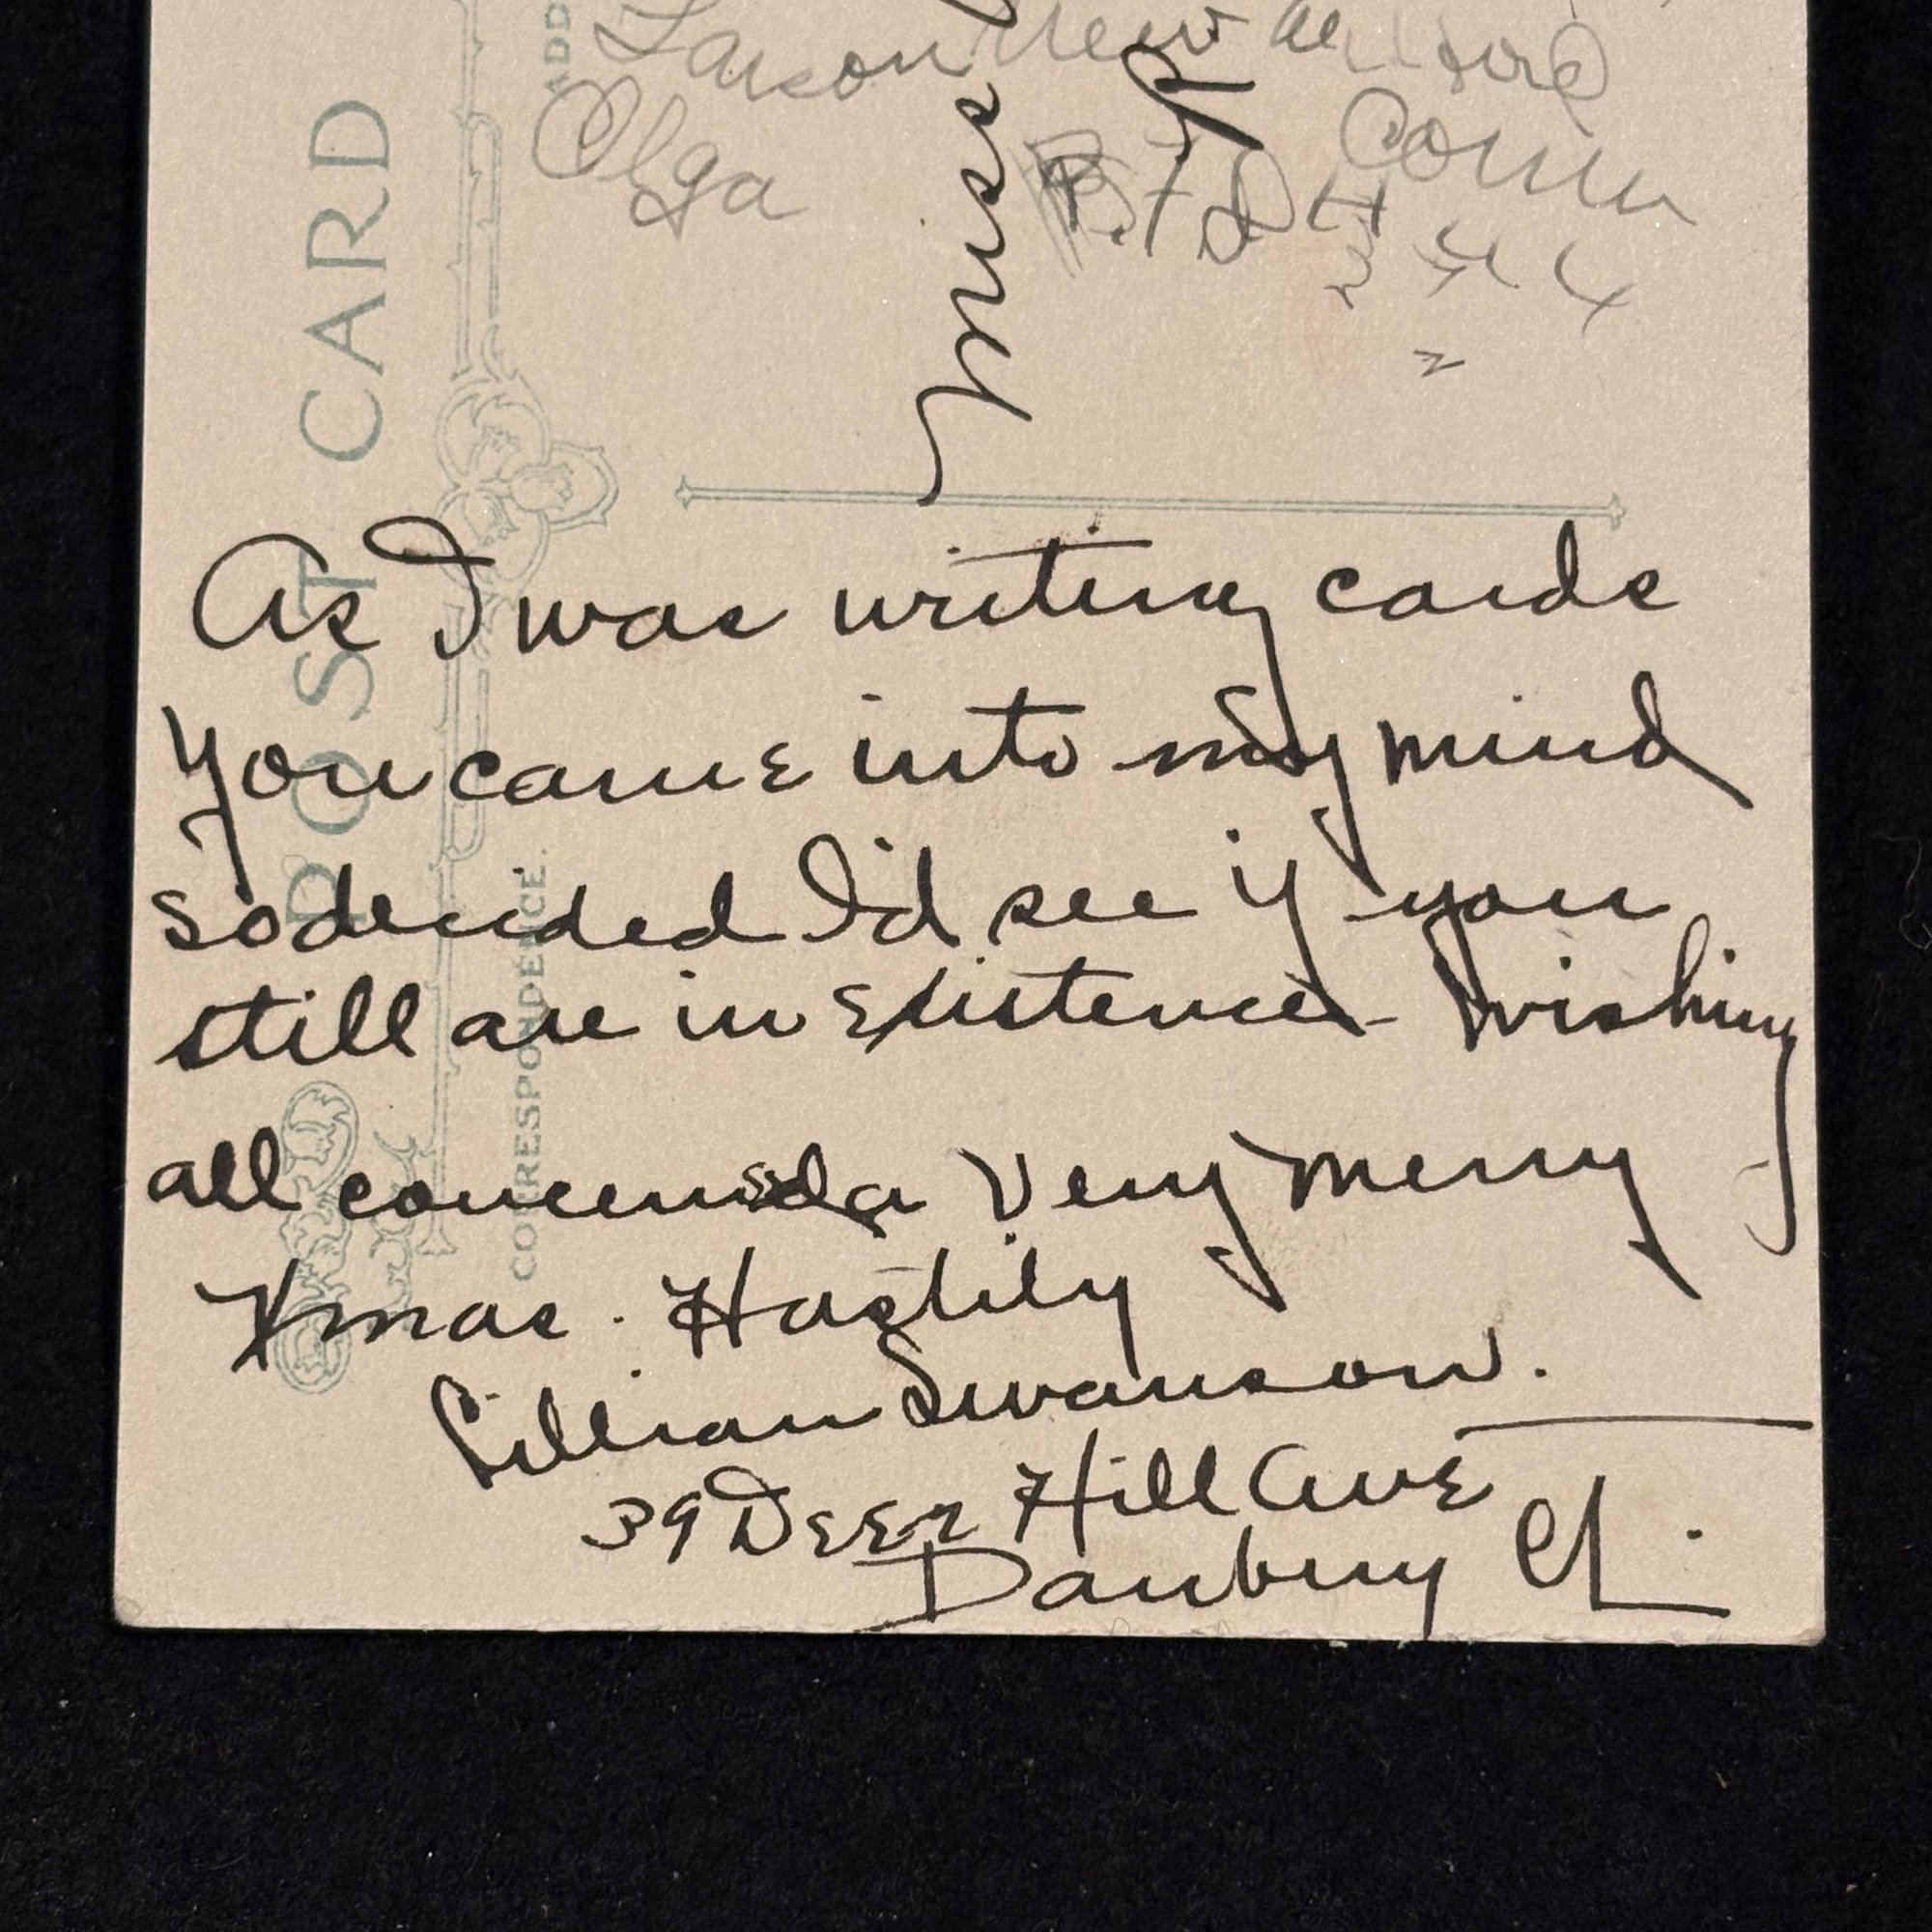 Larson New
Olga
Conn
Miss
POST CARD
CORRESPONDENCE.
As I was writing cards
you came into my mind
so decided I'd see if you
still are in existence - Wishing
all concerned a Very Merry
Xmas. Hastily
Lillian Swanson.
39 Deer Hill Ave
Danbury Ct.